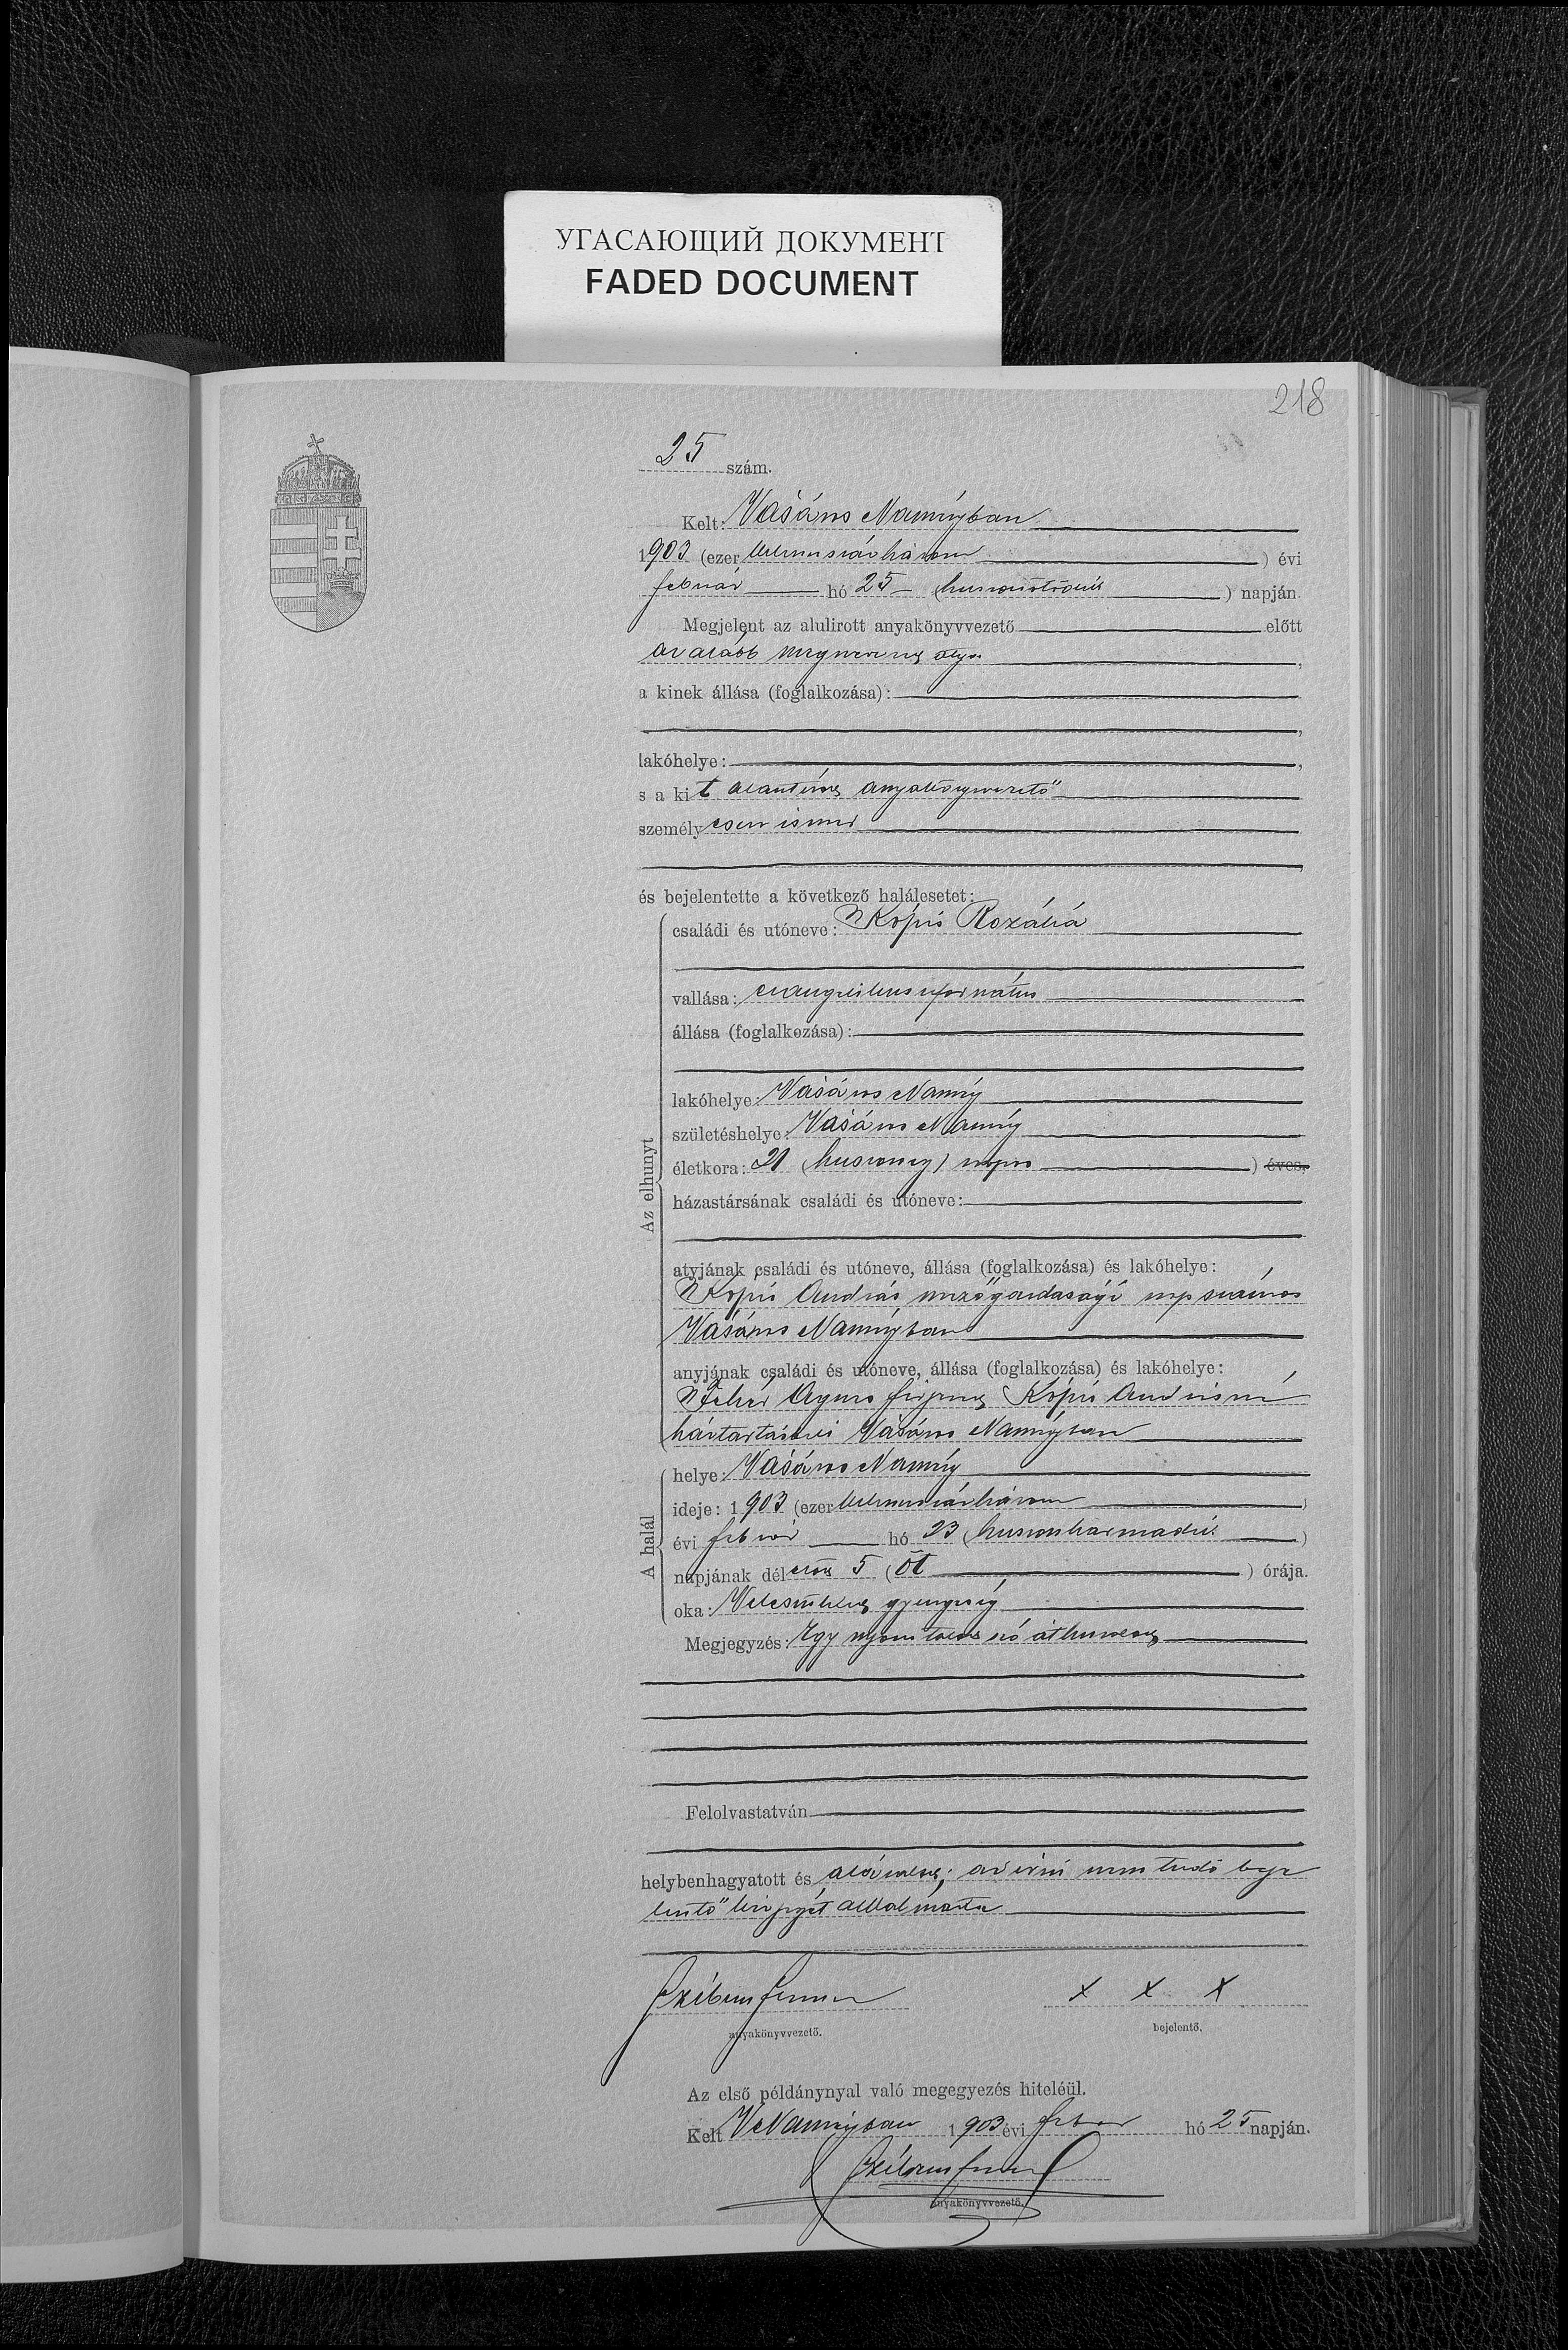 УГАСАЮЩИЙ ДОКУМЕНТ
FADED DOCUMENT
218
25 szám.
Kelt: Vásáros Naményban
1903 (ezer kilenczszázhárom) évi
február hó 25 (huszonötödik) napján.
Megjelent az alulirott anyakönyvvezető előtt
az alább megnevezett atya,
a kinek állása (foglalkozása):
lakóhelye:
s a kit alantirt anyakönyvvezető
személyesen ismer
és bejelentette a következő halálesetet:
Az elhunyt
családi és utóneve: Kópis Rozália
vallása: evangelikus református
állása (foglalkozása):
lakóhelye: Vásáros Namény
születéshelye: Vásáros Namény
életkora: 21 (huszonegy) napos) éves,
házastársának családi és utóneve:
atyjának családi és utóneve, állása (foglalkozása) és lakóhelye:
Kópis András mezőgazdasági napszámos
Vásáros Naményban
anyjának családi és utóneve, állása (foglalkozása) és lakóhelye:
Fehér Ágnes férjezett Kópis Andrásné
háztartásbeli Vásáros Naményban
A halál
helye: Vásáros Namény
ideje: 1903 (ezer kilenczszázhárom)
évi február hó 23 (huszonharmadik)
napjának délelőtt 5 (öt) órája.
oka: Veleszületett gyengeség
Megjegyzés: Egy nyomtatott szó áthúzva
Felolvastatván
helybenhagyatott és aláiratott; az irni nem tudó beje
lentő kézjegyét alkalmazta
x x x
anyakönyvvezető.
bejelentő.
Az első példánynyal való megegyezés hiteléül.
Kelt VNaményban 1903 évi febr hó 25 napján.
anyakönyvvezető.